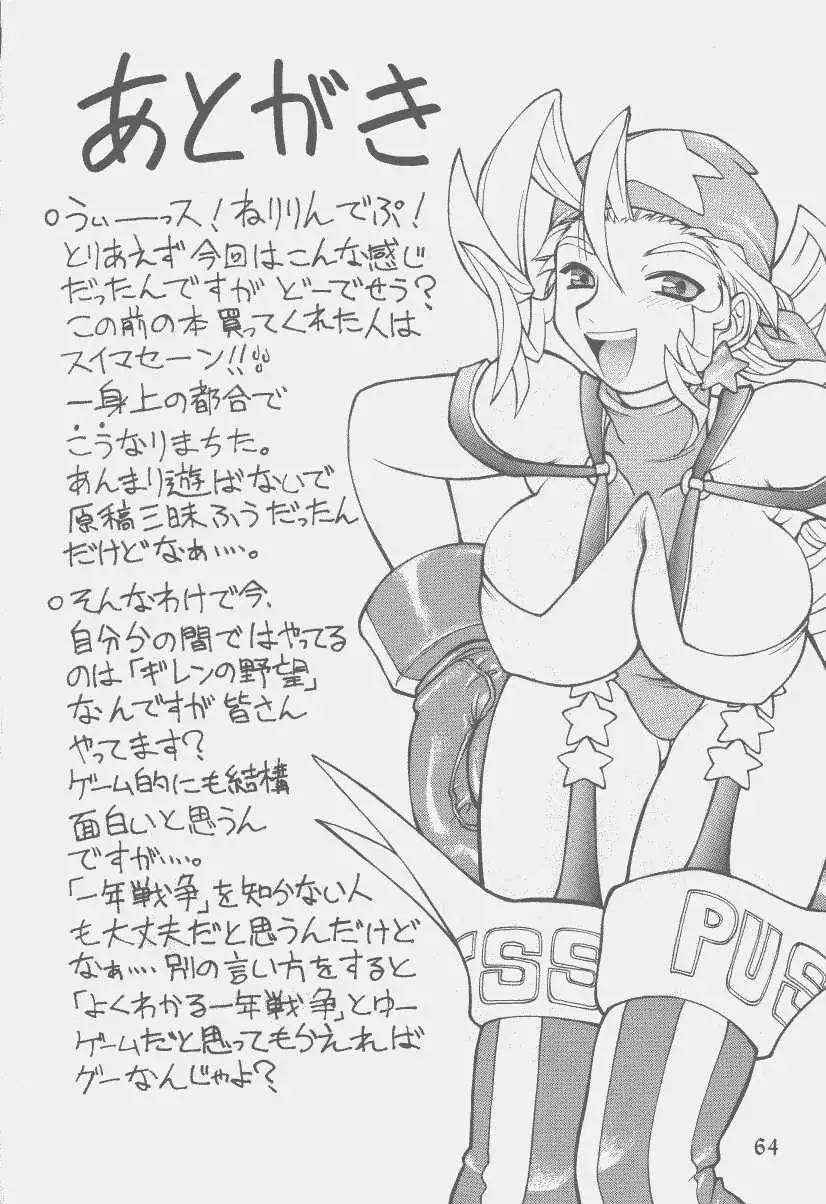 あとがき
○うぃーっス！ねりりんでぷ！
とりあえず今回はこんな感じ
だったんですが どーでせう？
この前の本買ってくれた人は
スイマセーン!!
一身上の都合で
こうなりまちた。
あんまり遊ばないで
原稿三昧ふうだったん
だけどなぁ・・・。
○そんなわけで今、
自分分の間ではやってる
のは「ギレンの野望」
なんですが皆さん
やってます？
ゲーム的にも結構
面白いと思うん
ですが・・・。
「一年戦争」を知かない人
も大丈夫だと思うんだけど
なぁ・・・別の言い方をすると
「よくわかる一年戦争」とゆー
ゲームだと思ってもかえれば
グーなんじゃよ？
TSS
PUS
64